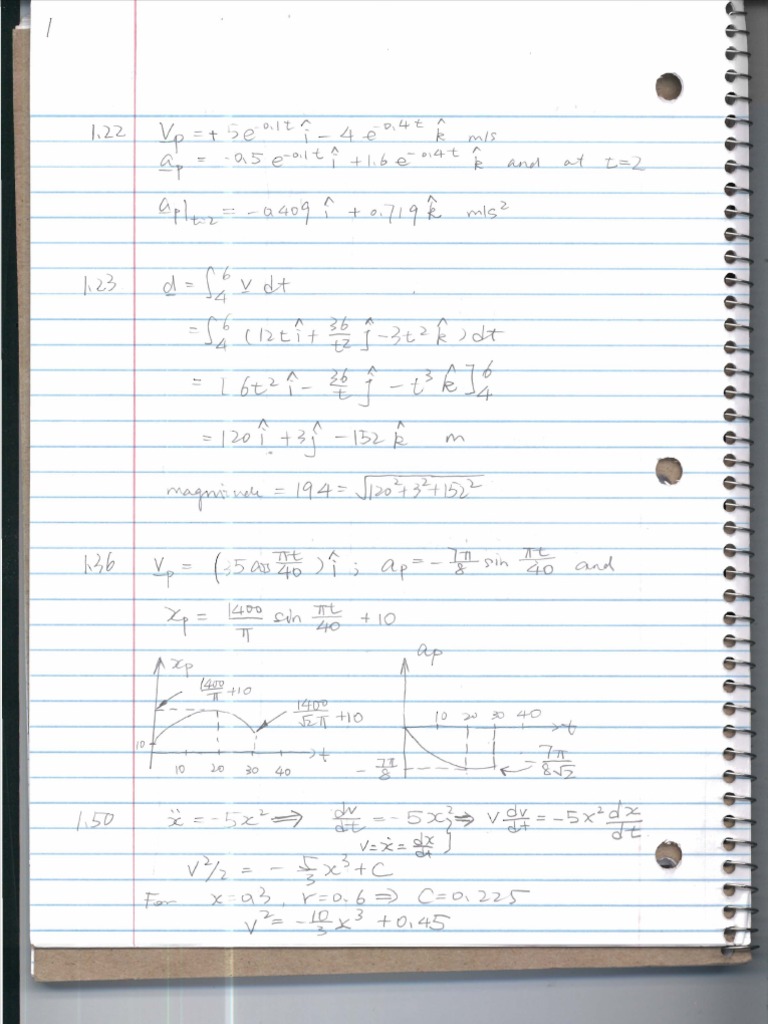 1
1.22 v_p = + 5e^{-0.1t} î - 4 e^{-0.4t} k̂ m/s
a_p = -0.5 e^{-0.1t} î + 1.6 e^{-0.4t} k̂ and at t=2
a_p|_{t=2} = -0.409 î + 0.719 k̂ m/s²
1.23 d = ∫_4^6 v dt
= ∫_4^6 (12t î + 36/t² ĵ - 3t² k̂) dt
= [6t² î - 36/t ĵ - t³ k̂]_4^6
= 120 î + 3 ĵ - 152 k̂ m
magnitude = 194 = √(120²+3²+152²)
1.36 v_p = (35 cos πt/40) î ; a_p = - 7π/8 sin πt/40 and
x_p = 1400/π sin πt/40 + 10
x_p
1400/π + 10
1400/(√2 π) + 10
10
10 20 30 40 t
a_p
10 20 30 40 t
- 7π/8
- 7π/(8√2)
1.50 ẍ = -5x² ⇒ dv/dt = -5x² } ⇒ v dv/dt = -5x² dx/dt
v = ẋ = dx/dt
v²/2 = - 5/3 x³ + C
For x = 0.3, v = 0.6 ⇒ C = 0.225
v² = - 10/3 x³ + 0.45